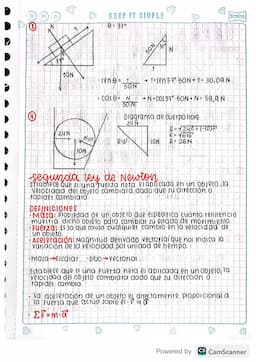 KEEP IT SIMPLE
Scribe
①
θ = 37°
T
N
10N
50N
37°
N
T
senθ = T / 50N → T = sen 37° · 50N = T = 30,09 N
cosθ = N / 50N → N = cos 37° · 50N = N = 39,9 N
④
Diagrama de cuerpo libre
24N
10N
24 N
10N
R = 26N
Segunda ley de Newton
Establece que si una fuerza neta es aplicada en un objeto, la
velocidad del objeto cambiará dado que su dirección o
rapidez cambiará.
DEFINICIONES
· Masa: Propiedad de un objeto que especifica cuánta resistencia
muestra dicho objeto para cambiar su estado de movimiento.
· Fuerza: Es lo que causa cualquier cambio en la velocidad de
un objeto.
· Aceleración: Magnitud derivada vectorial que nos indica la
variación de la velocidad por unidad de tiempo.
· Masa → Escalar
· Peso → Vectorial
Establece que si una fuerza neta es aplicada en un objeto, la
velocidad del objeto cambiará dado que su dirección o
rapidez cambia.
· La aceleración de un objeto es directamente proporcional a
la fuerza que actúa sobre él
ΣF = m·a
Powered by CS CamScanner